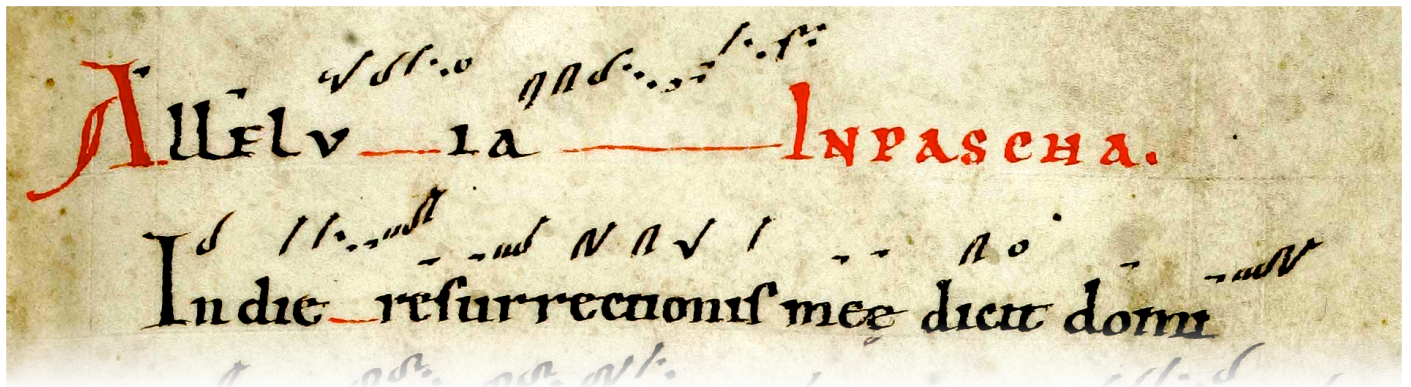 AllEluia InPASCHA.
In die resurrectionis meę dicit domi